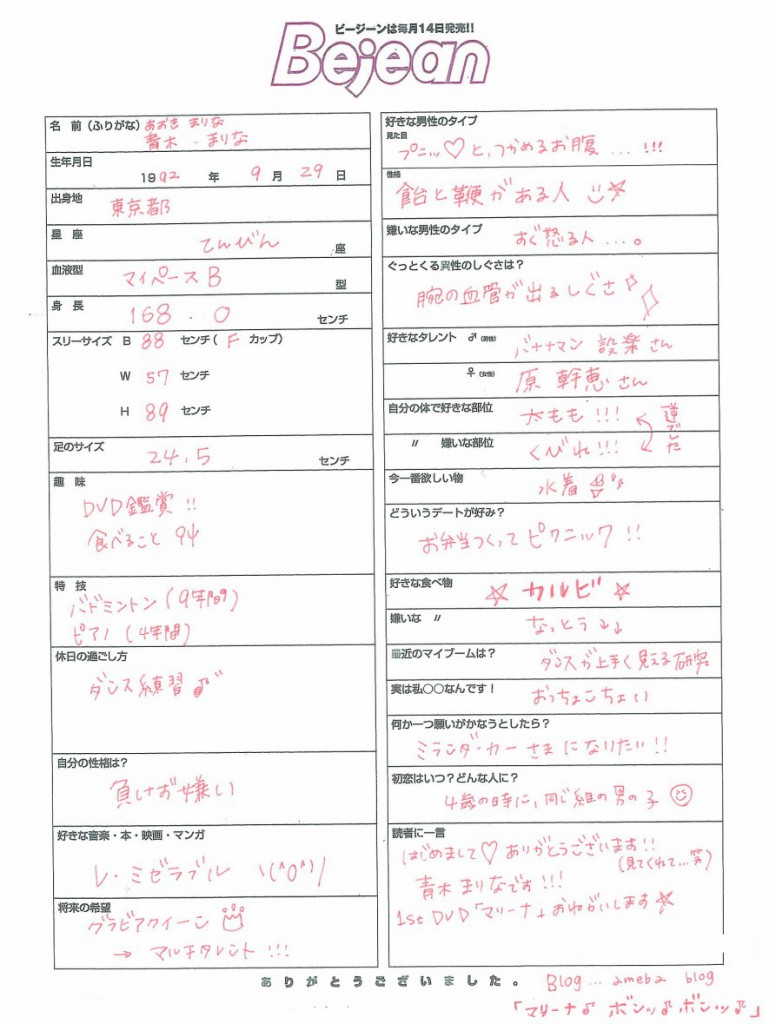 ビージーンは毎月14日発売!!
Bejean
名 前（ふりがな）あおき まりな
青木 まりな
生年月日
1992 年 9 月 29 日
出身地
東京都
星 座
てんびん 座
血液型
マイペースB 型
身 長
168.0 センチ
スリーサイズ B 88 センチ( F カップ)
W 57 センチ
H 89 センチ
足のサイズ
24.5 センチ
趣 味
DVD鑑賞!!
食べること
特 技
バドミントン(9年間)
ピアノ(4年間)
休日の過ごし方
ダンス練習♪
自分の性格は?
負けず嫌い
好きな音楽・本・映画・マンガ
レ・ミゼラブル ヽ(^o^)丿
将来の希望
グラビアクイーン
→ マルチタレント!!!
好きな男性のタイプ
見た目
プニッ♡と、つかめるお腹...!!!
性格
飴と鞭がある人 ☆
嫌いな男性のタイプ
すぐ怒る人...。
ぐっとくる異性のしぐさは?
腕の血管が出るしぐさ
好きなタレント ♂(男性)
バナナマン 設楽さん
♀(女性)
原 幹恵さん
自分の体で好きな部位
太もも!!!
〃 嫌いな部位
くびれ!!!
逆でした
今一番欲しい物
水着
どういうデートが好み?
お弁当つくってピクニック!!
好きな食べ物
☆ カルビ ☆
嫌いな 〃
なっとう↓↓
最近のマイブームは?
ダンスが上手く見える研究
実は私○○なんです!
おっちょこちょい
何か一つ願いがかなうとしたら?
ミランダ・カーさまになりたい!!
初恋はいつ?どんな人に?
4歳の時に、同じ組の男の子
読者に一言
はじめまして♡ありがとうございます!!
(見てくれて...笑)
青木まりなです!!!
1st DVD「マリーナ」おねがいします☆
ありがとうございました。
Blog...ameba blog
「マリーナ♪ ボンッ♪ボンッ♪」